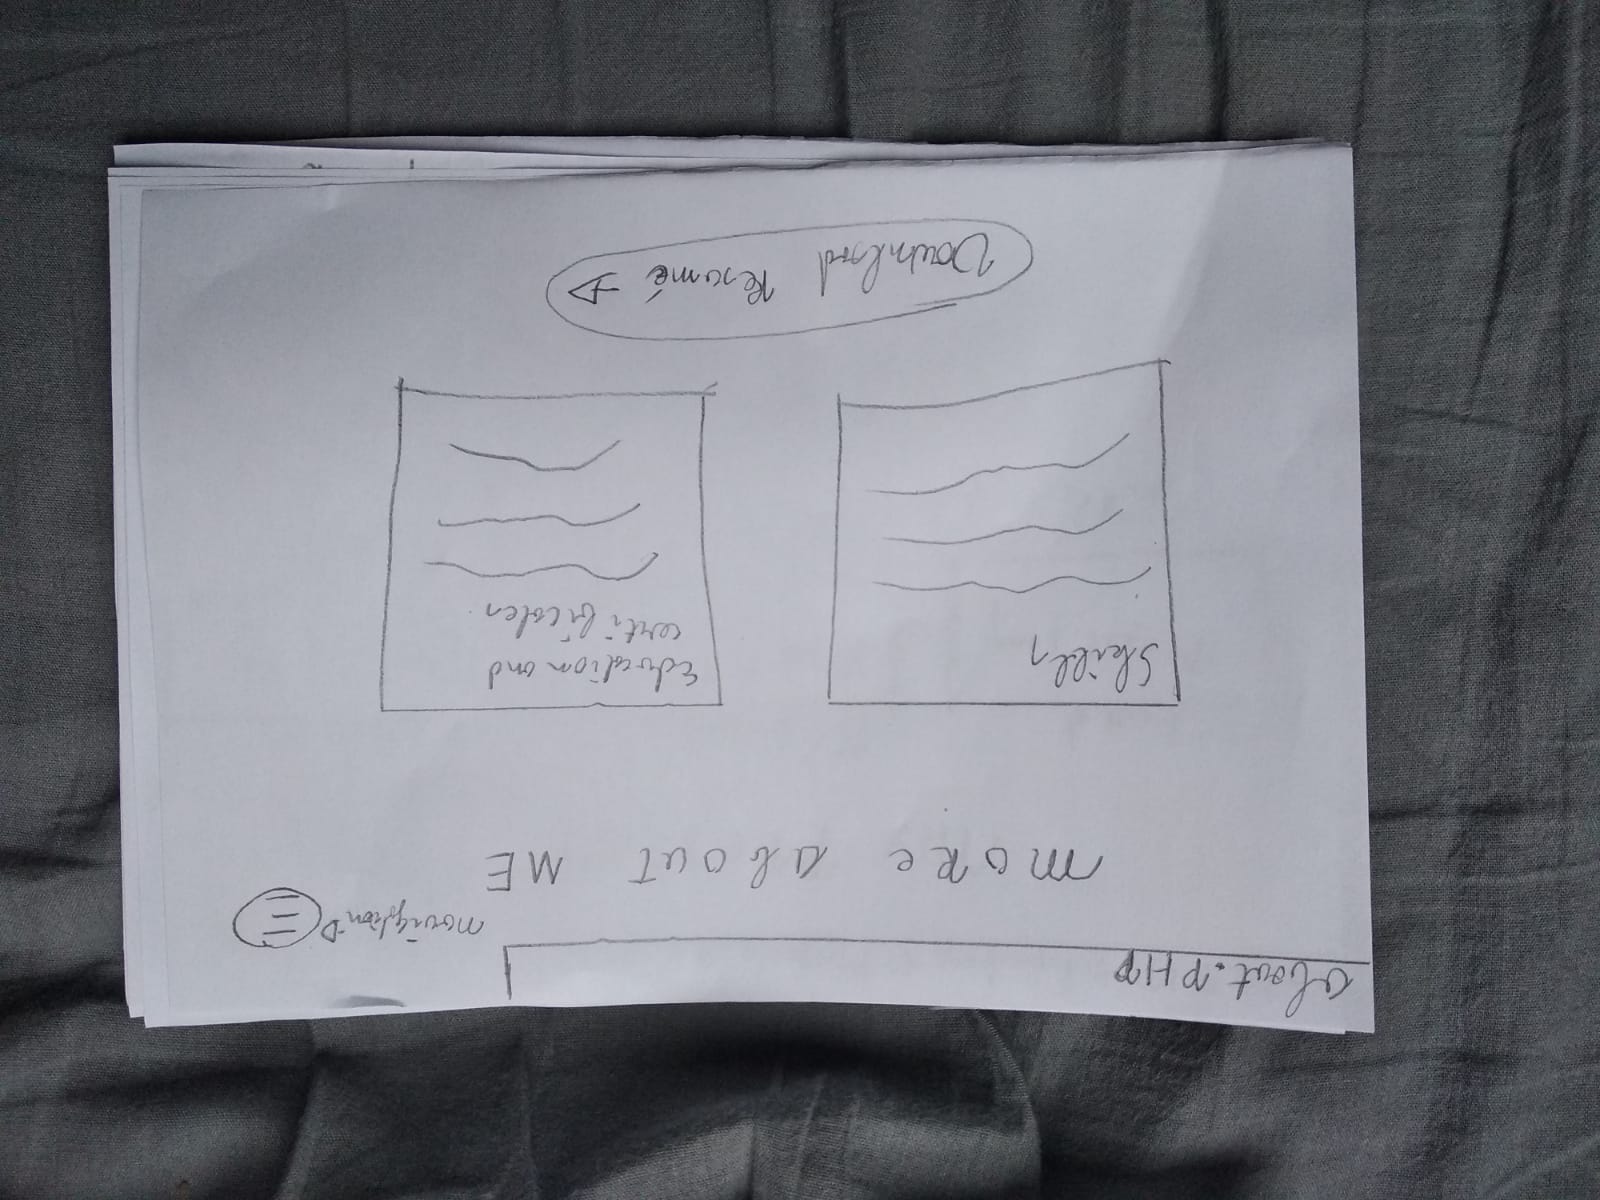 about.PHP
navigation
MORE about ME
Skills
Education and
certificates.
Download Resumé